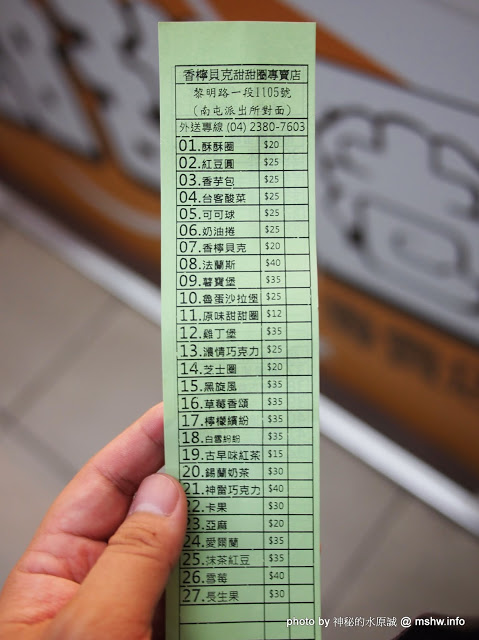 香檸貝克甜甜圈專賣店
黎明路一段1105號
(南屯派出所對面)
外送專線 (04) 2380-7603
01.酥酥圈 $20
02.紅豆圓 $25
03.香芋包 $25
04.台客酸菜 $25
05.可可球 $25
06.奶油捲 $25
07.香檸貝克 $20
08.法蘭斯 $40
09.薯寶堡 $35
10.魯蛋沙拉堡 $25
11.原味甜甜圈 $12
12.雞丁堡 $35
13.濃情巧克力 $25
14.芝士圈 $20
15.黑旋風 $35
16.草莓香頌 $35
17.檸檬繽紛 $35
18.白雪紛紛 $35
19.古早味紅茶 $15
20.錫蘭奶茶 $30
21.神雷巧克力 $40
22.卡果 $30
23.亞麻 $20
24.愛爾蘭 $35
25.抹茶紅豆 $35
26.雪莓 $40
27.長生果 $30
photo by 神秘的水原誠 @ mshw.info